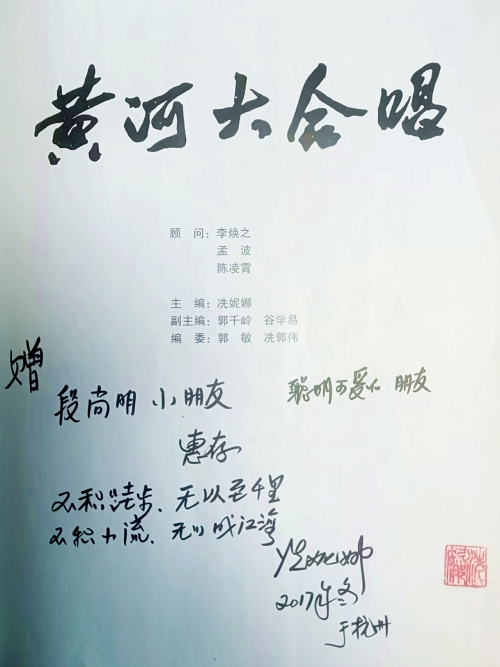 黄河大合唱
顾 问：李焕之
孟 波
陈凌霄
主 编：冼妮娜
副主编：郭千岭 谷学易
编 委：郭 敏 冼郭伟
赠
段尚明 小朋友 聪明可爱小朋友
惠存
不积跬步、无以至千里
不积小流、无以成江海
冼妮娜
2017年冬
于杭州